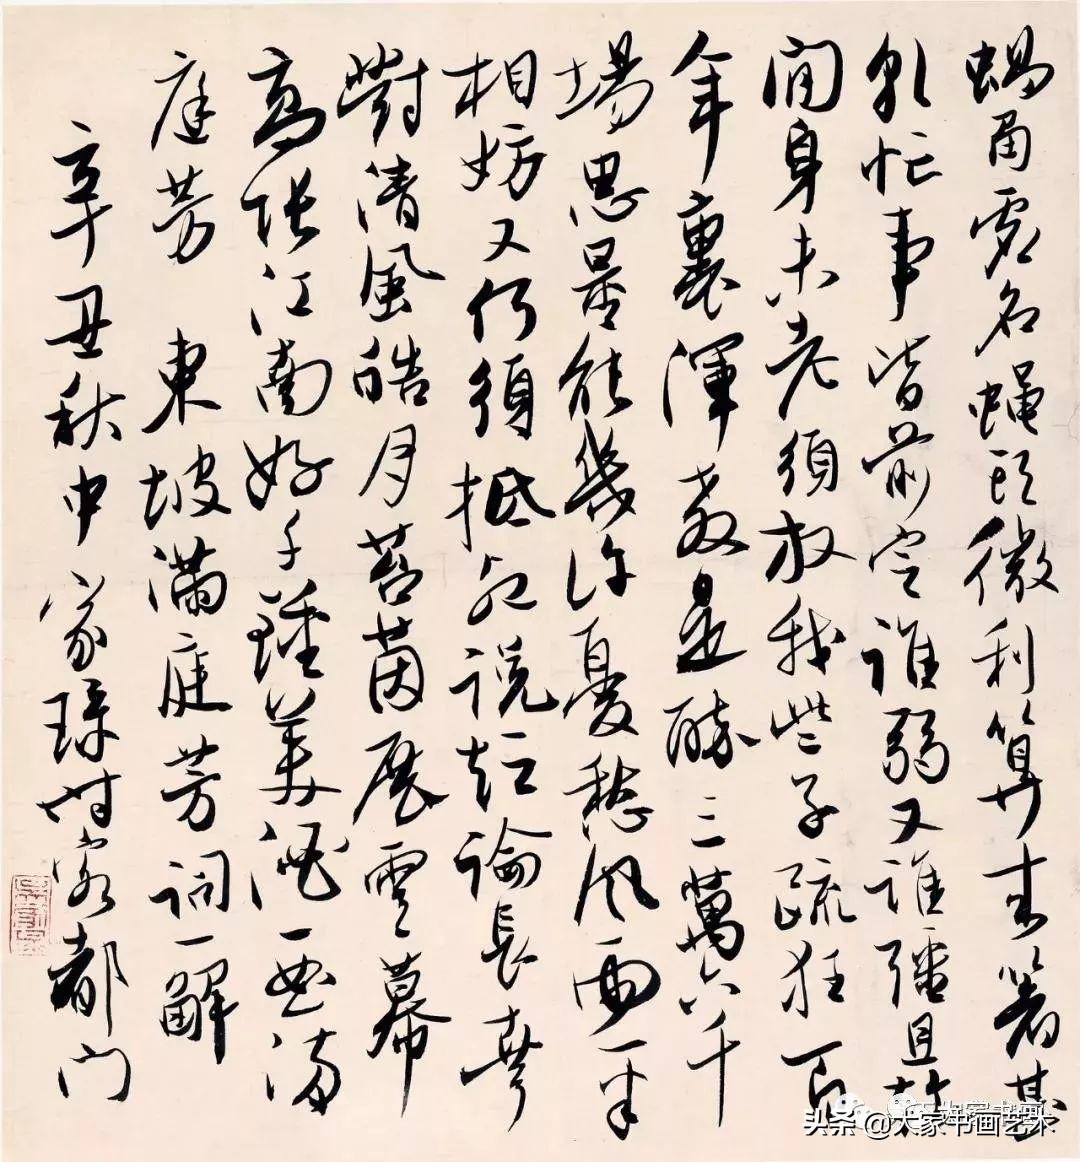 蝸角虛名蠅頭微利算來著甚
乾忙事皆前定誰弱又誰彊且趁
閒身未老須放我些子疏狂百
年裏渾教是醉三萬六千
場思量能幾許憂愁風雨一半
相妨又何須抵死說短論長幸
對清風皓月苔茵展雲幕
高張江南好千鍾美酒一曲滿
庭芳 東坡滿庭芳詞一解
辛丑秋中 家琭時客都門
吳家琭
头条 @大家书画艺术